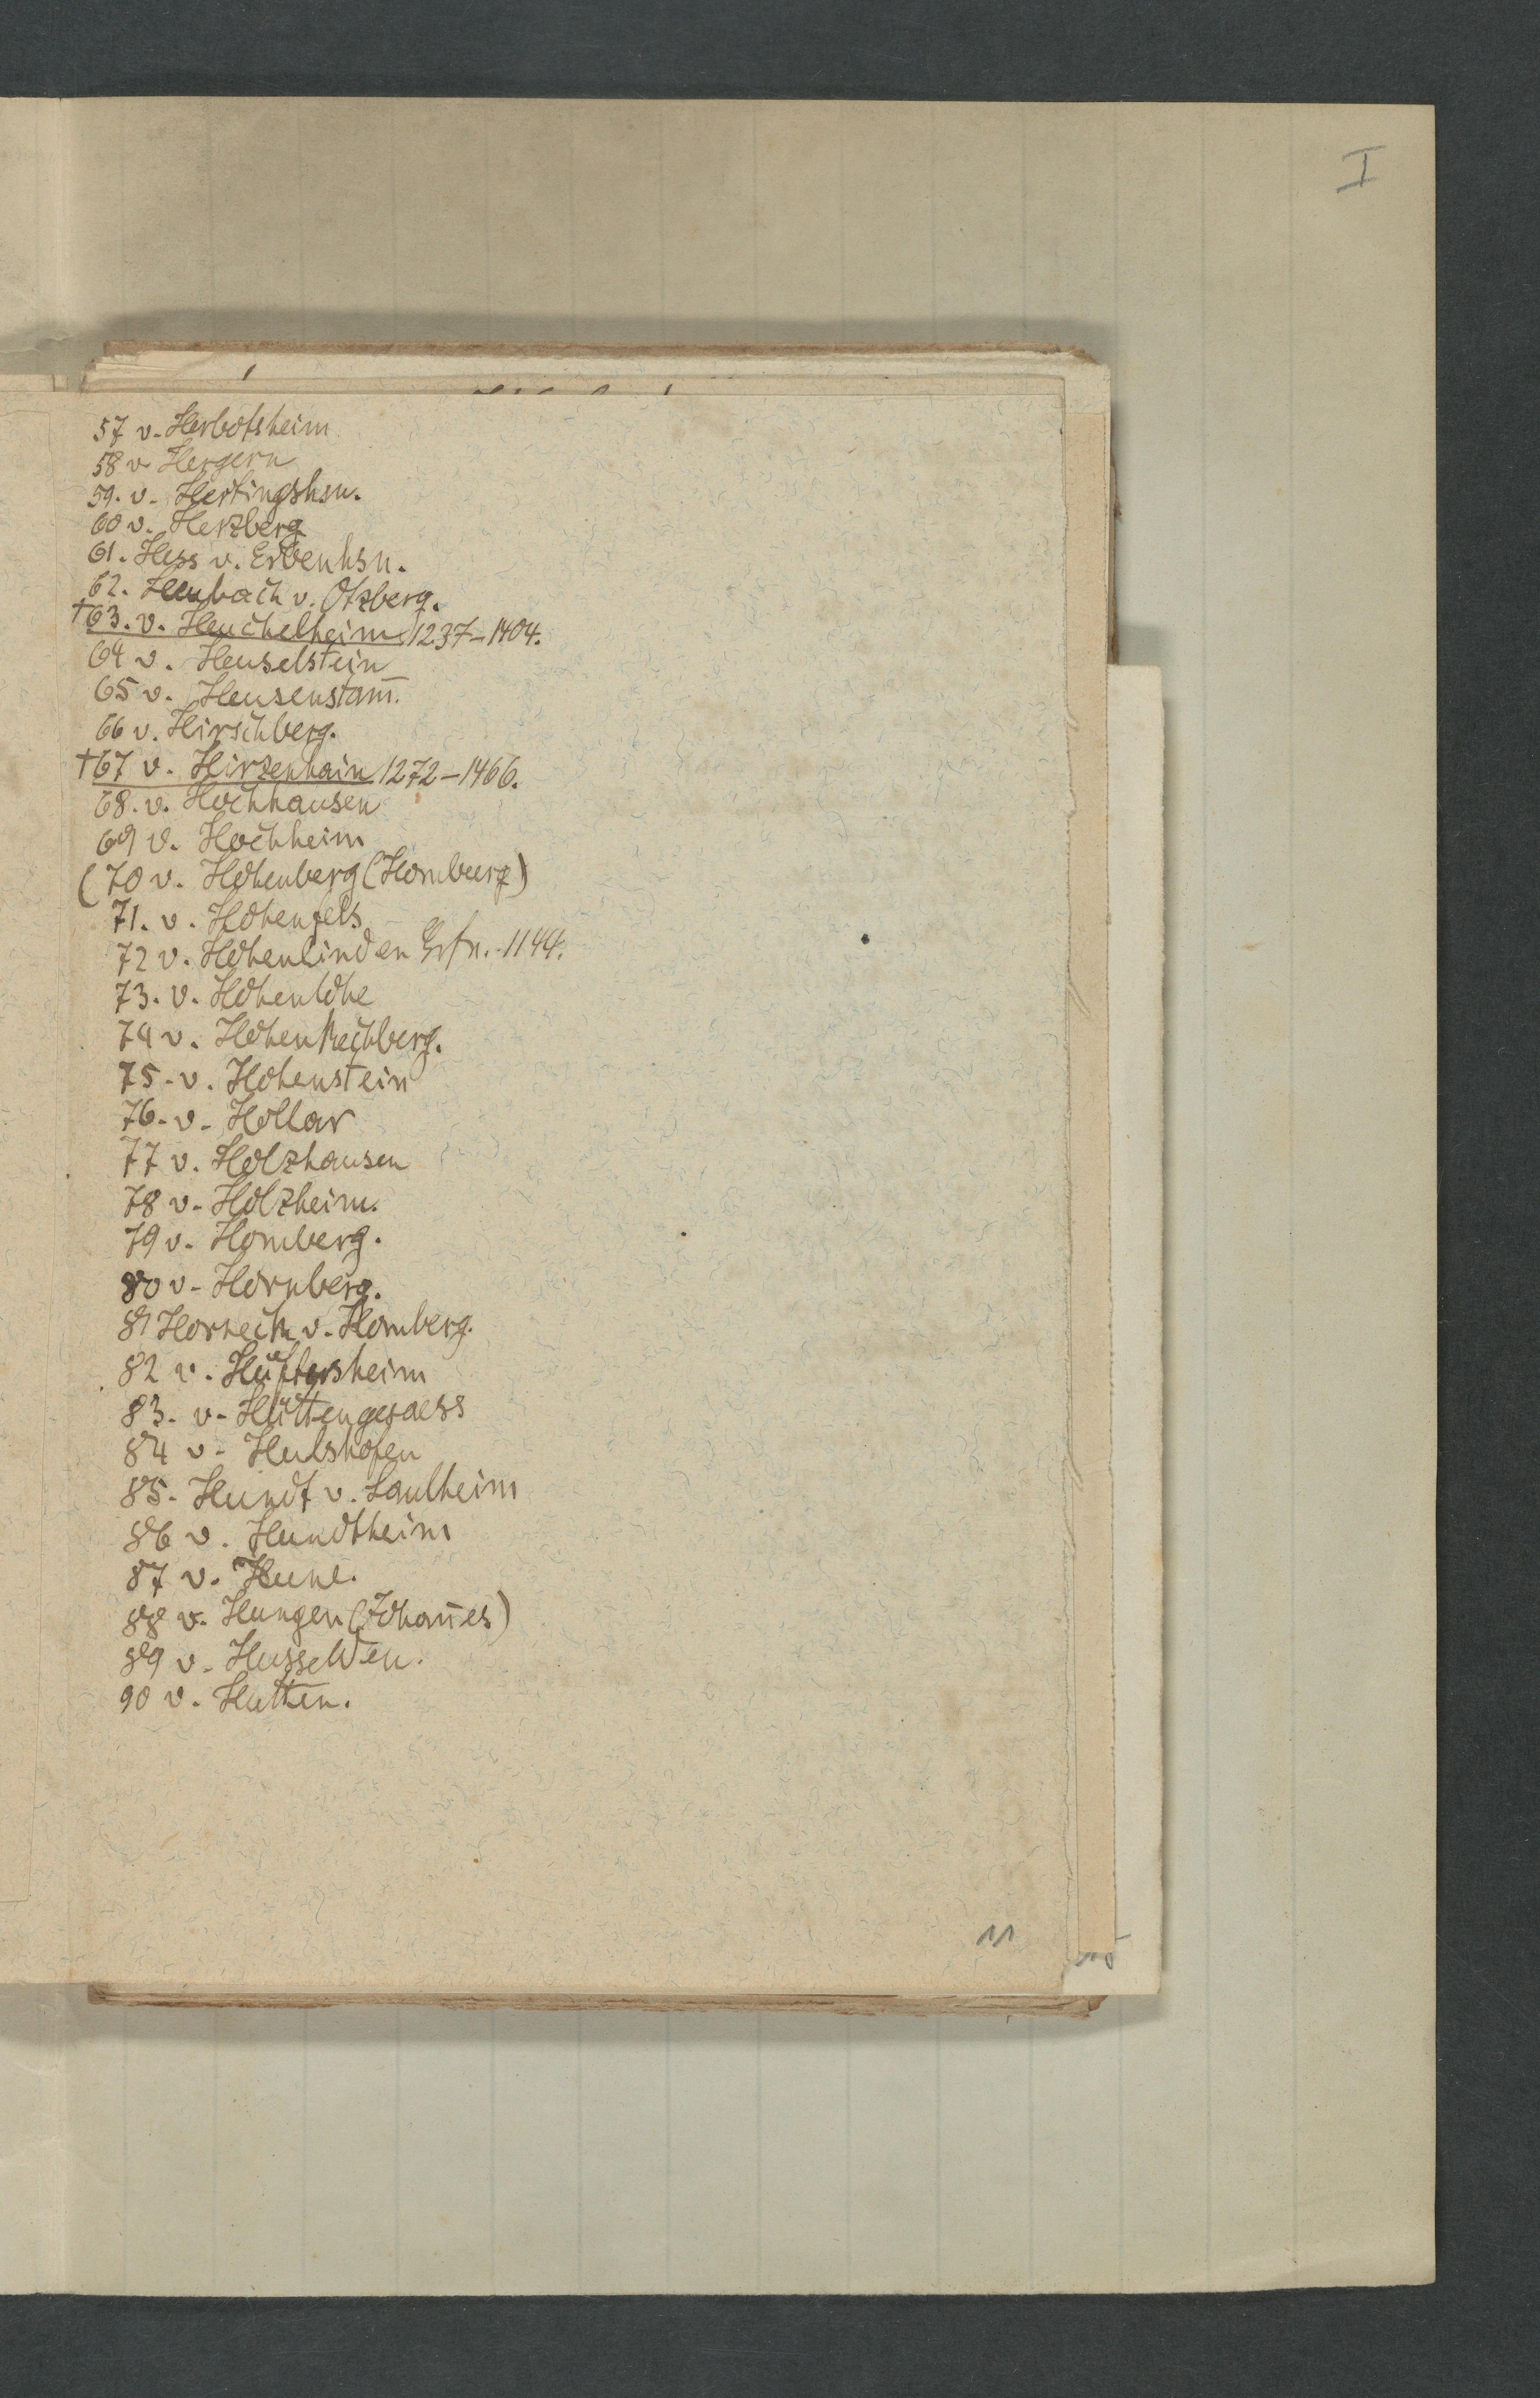 I
57 v. Herbotsheim
58 v. Hergern
59. v. Hertingshsn.
60 v. Herzberg
61. Hess v. Erbenhsn.
62. Heubach v. Otzberg.
†63. v. Heuchelheim 1237–1404.
64 v. Heuselstein
65 v. Heusenstam̅.
66 v. Hirschberg.
†67 v. Hirzenhain 1272–1466.
68. v. Hochhausen
69 v. Hochheim
(70 v. Hohenberg (Homburg)
71. v. Hohenfels
72 v. Hohenlinden 1144.
73. v. Hohenlohe
74 v. Hohenrechberg.
75. v. Hohenstein
76. v. Hollar
77 v. Holzhausen
78 v. Holzheim.
79 v. Homberg.
80 v. Hornberg.
81 Horneck v. Homberg.
82 v.
83. v. Hüttengesaess
84 v. Hulshofen
85. Hundt v. Saulheim
86 v. Hundtheim
87 v. Hune.
88 v. Hungen (Johan̅es)
89 v. Husselden.
90 v. Hutten.
11